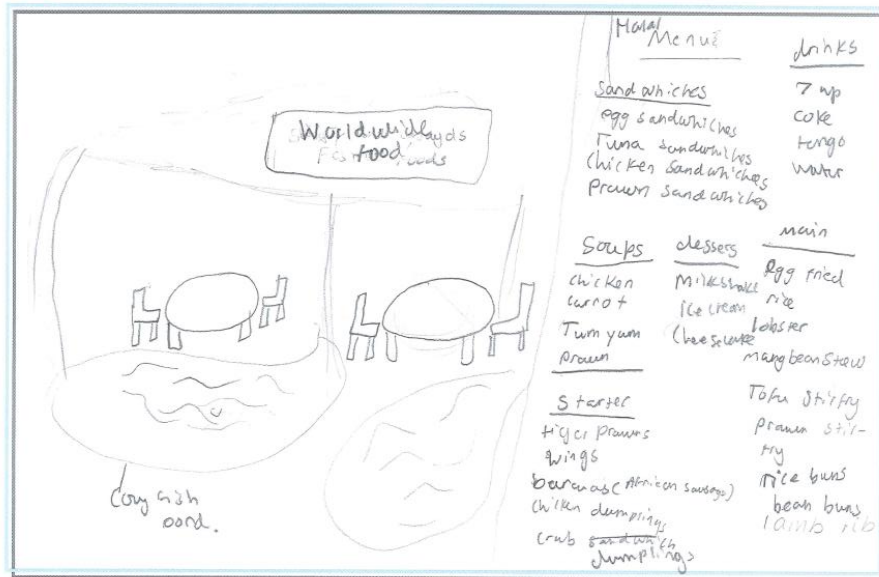 Worldwide
food
Cory fish
pond.
Halal
Menue
Sandwhiches
egg sandwhiches
Tuna sandwhiches
Chicken Sandwhiches
Prawn sandwhiches
drinks
7 up
coke
tango
water
Soups
chicken
carrot
Tum yum
prawn
dessers
Milkshake
ice cream
Cheesecake
main
egg fried
rice
lobster
mangbean stew
Tofu stirfry
prawn stir-
fry
rice buns
bean buns
lamb rib
Starter
tiger prawns
wings
(African sausage)
chicken dumplings
crab sandwhich
dumplings